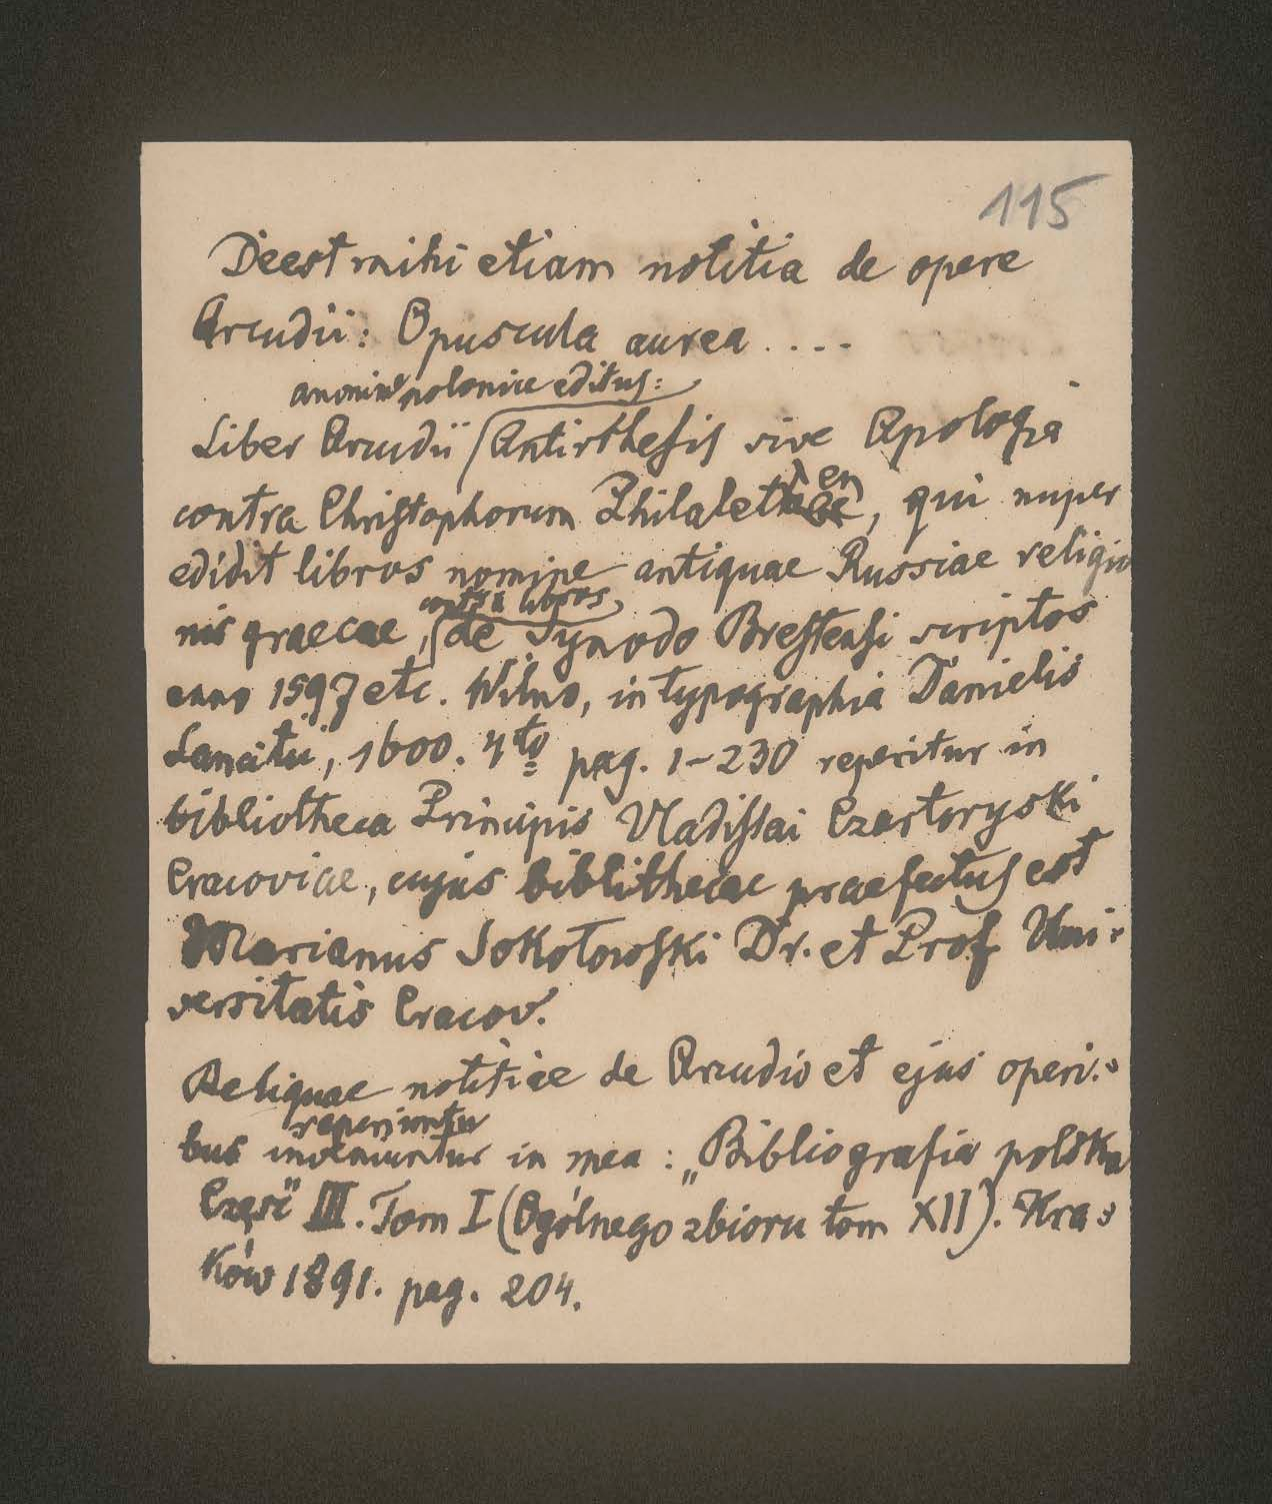 115
Deest mihi etiam notitia de opere
Arcudii: Opuscula aurea ....
anonime polonice editus:
Liber Arcudii Antirthesis sive Apologia
contra Christophorum Philalethen, qui nuper
edidit libros nomine antiquae Russiae religio
nis graecae, de Synodo Brestensi scriptos
contra libros
anno 1597 etc. Wilno, in typographia Danielis
Lancitii, 1600. 4to pag. 1-230 reperitur in
bibliotheca Principis Vladislai Czartoryski
Cracoviae, cujus biblithecae praefectus est
Marianus Sokołowski Dr. et Prof Uni-
versitatis Cracov.
Reliquae notitiae de Arcudio et ejus operi-
reperiuntur
bus inveniuntur in mea: „Bibliografia polska
Część III. Tom I (Ogólnego zbioru tom XII). Kra-
ków 1891. pag. 204.